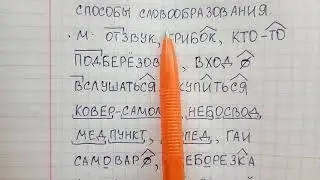 СПОСОБЫ СЛОВООБРАЗОВАНИЯ.
• М: ОТЗВУК, ГРИБОК, КТО-ТО
ПОДБЕРЁЗОВ , ВХОД ∅
ВСЛУШАТЬСЯ, КУПИТЬСЯ
КОВЕР-САМОЛ , НЕБОСВОД,
МЕДПУНКТ, ПЕД, ГАИ
САМОВАР∅, БОРЕЗКА